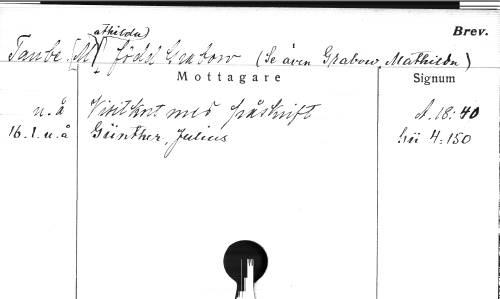 Brev.
athilda)
Taube, [M] född Grabow (Se även Grabow, Mathilda)
Mottagare Signum
u.å Visitkort med påskrift A.18:40
16.1.u.å Günther, Julius Gü 4:150